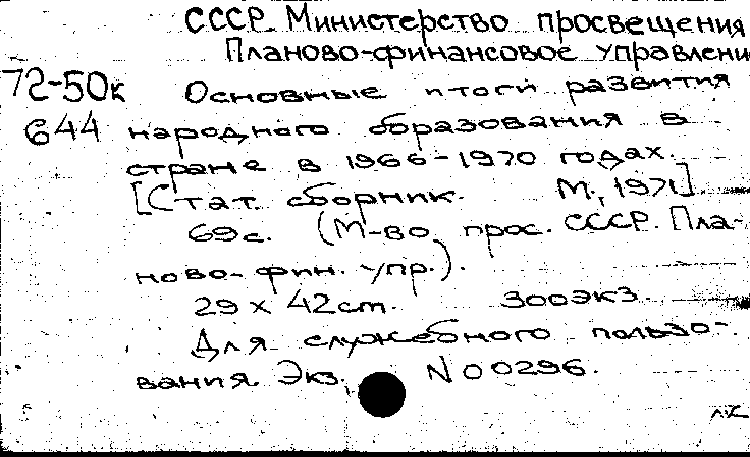 СССР. Министерство просвещения
Планово-финансовое управлени
72-50к Основные итоги развития
644 народного образования в
стране в 1966-1970 годах.
[Стат. сборник. М., 1971]
69с. (М-во прос. СССР. Пла-
ново-фин. упр.).
29 х 42 ст. 300экз
Для служебного пользо-
вания. Экз. N 00296.